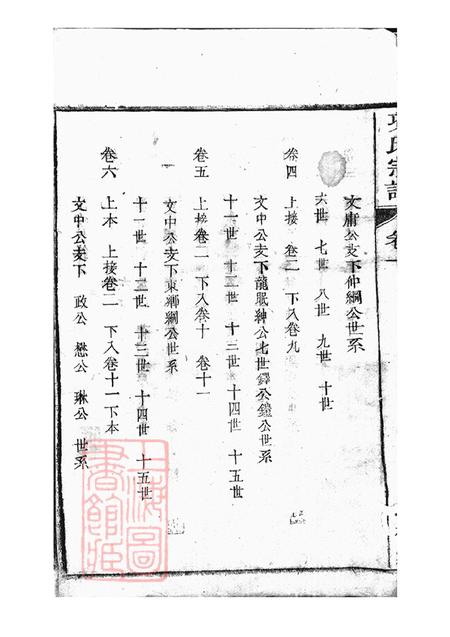 氏宗譜 卷一
文庸公支下仲綱公世系
六世 七世 八世 九世 十世
卷四 上接 卷二 下入卷九
文中公支下龍眠紳公七世鐸公鐘公世系
十一世 十二世 十三世 十四世 十五世
卷五 上接卷二 下入卷十 卷十一
文中公支下東獅綱公世系
十一世 十二世 十三世 十四世 十五世
卷六 上本 上接卷二 下入卷十一下本
文中公支下 政公 懋公 琳公 世系
上海圖書館藏